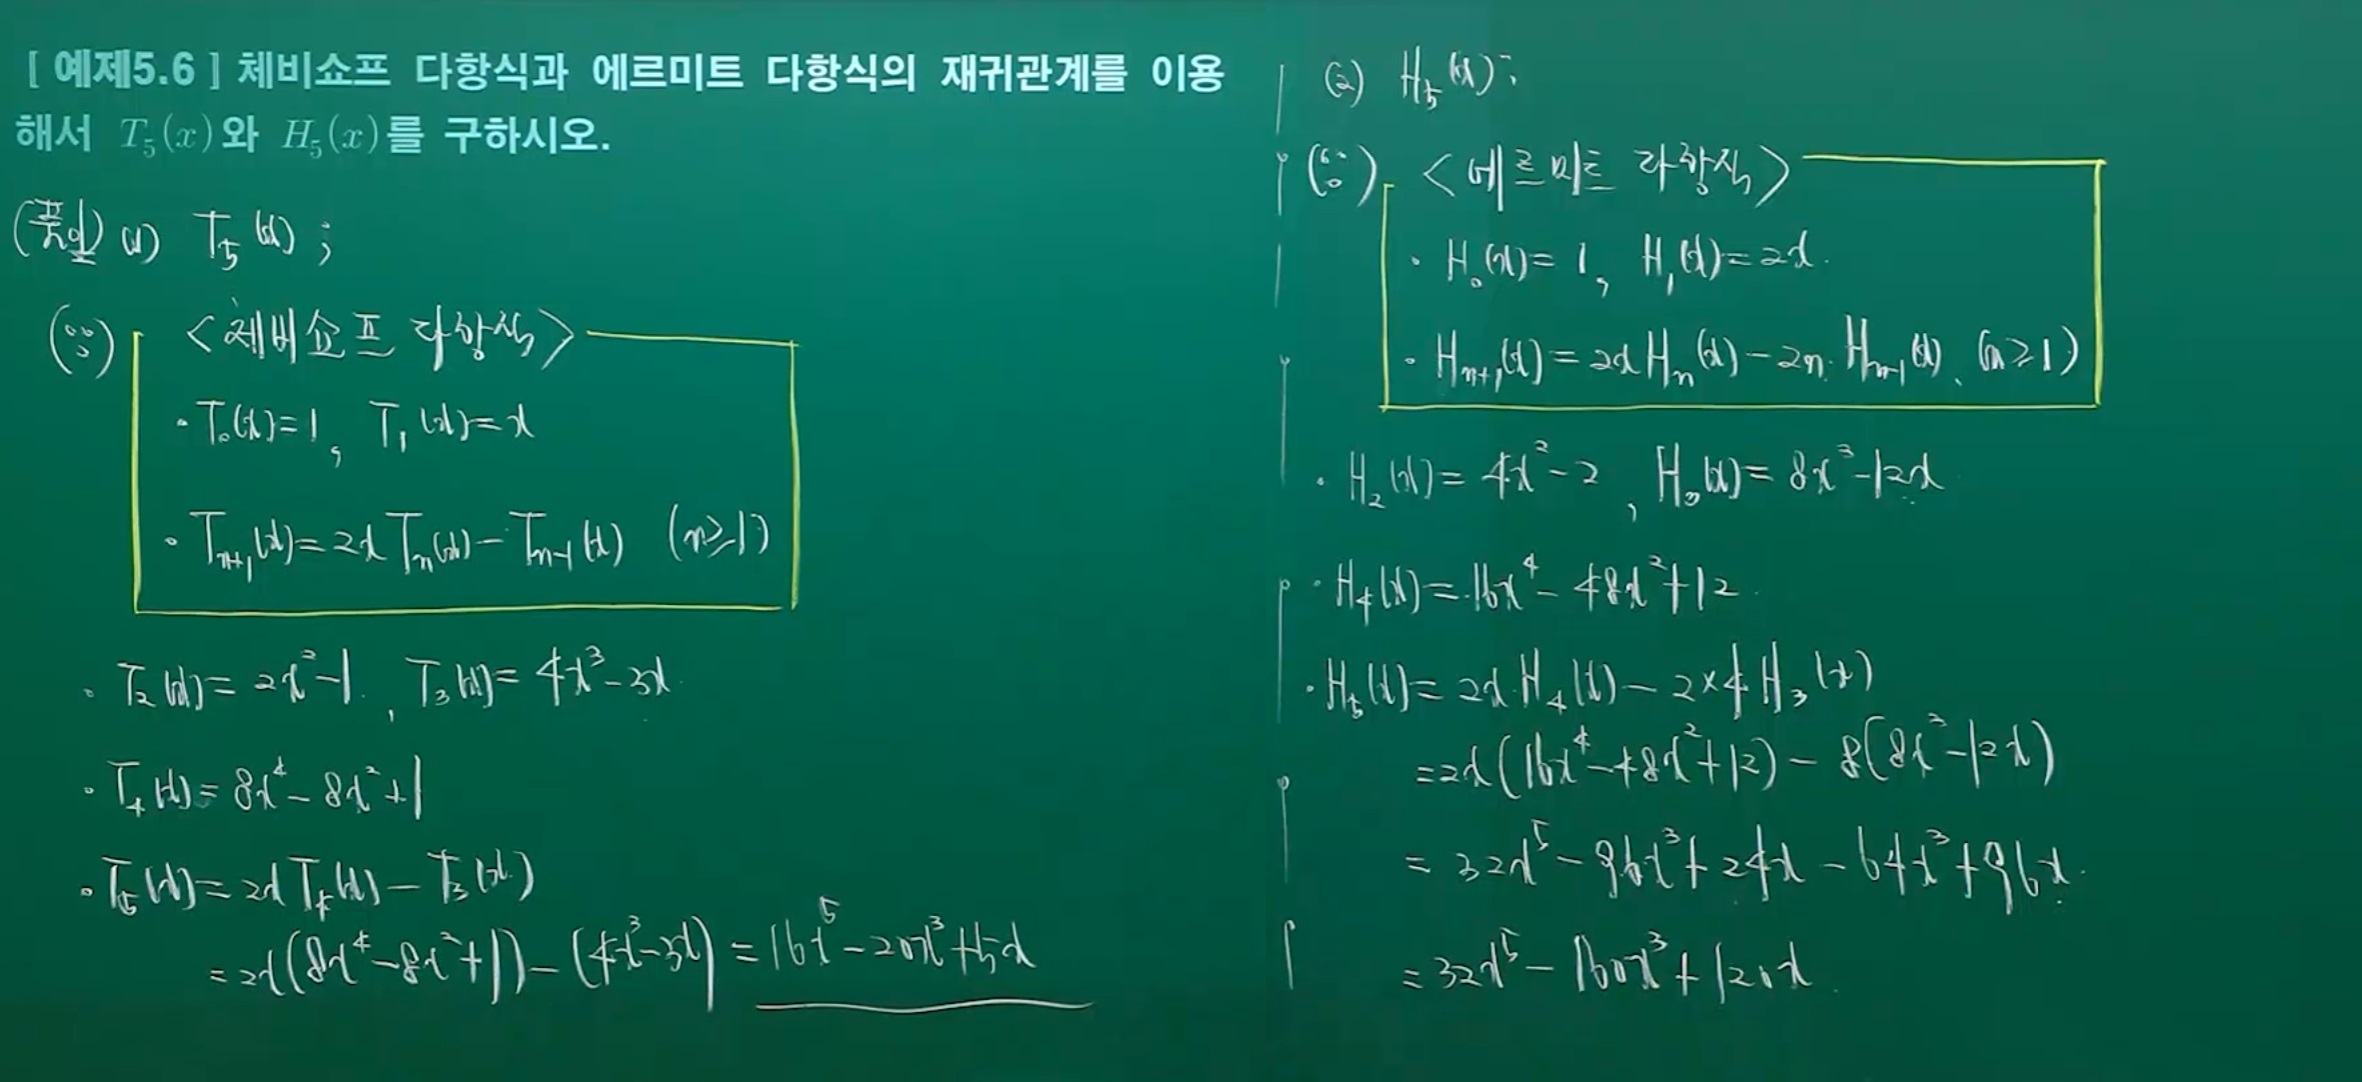 [ 예제5.6 ] 체비쇼프 다항식과 에르미트 다항식의 재귀관계를 이용
해서 T₅(x)와 H₅(x)를 구하시오.
(풀이) (1) T₅(x) ;
< 체비쇼프 다항식 >
• T₀(x) = 1, T₁(x) = x
• Tₙ₊₁(x) = 2x Tₙ(x) - Tₙ₋₁(x) (n ≥ 1)
• T₂(x) = 2x² - 1, T₃(x) = 4x³ - 3x
• T₄(x) = 8x⁴ - 8x² + 1
• T₅(x) = 2x T₄(x) - T₃(x)
= 2x(8x⁴ - 8x² + 1) - (4x³ - 3x) = 16x⁵ - 20x³ + 5x
(2) H₅(x) ;
< 에르미트 다항식 >
• H₀(x) = 1, H₁(x) = 2x
• Hₙ₊₁(x) = 2x Hₙ(x) - 2n · Hₙ₋₁(x), (n ≥ 1)
• H₂(x) = 4x² - 2, H₃(x) = 8x³ - 12x
• H₄(x) = 16x⁴ - 48x² + 12
• H₅(x) = 2x H₄(x) - 2×4 H₃(x)
= 2x(16x⁴ - 48x² + 12) - 8(8x³ - 12x)
= 32x⁵ - 96x³ + 24x - 64x³ + 96x
= 32x⁵ - 160x³ + 120x